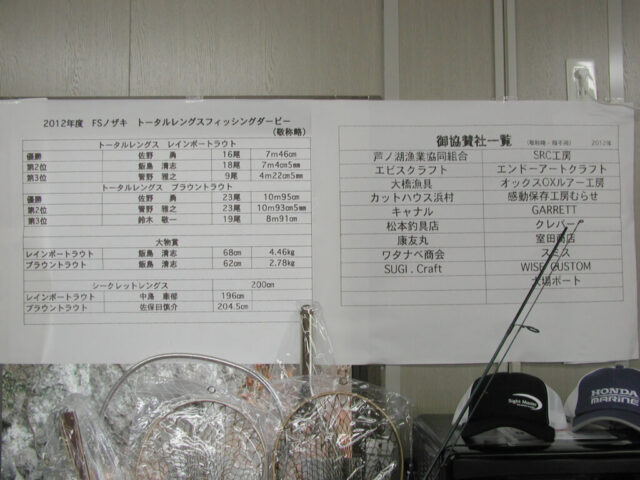 2012年度 FSノザキ トータルレングスフィッシングダービー
(敬称略)
トータルレングス レインボートラウト
優勝 佐野 勇 16尾 7m46cm
第2位 飯島 清志 18尾 7m4cm5mm
第3位 菅野 雅之 9尾 4m22cm5mm
トータルレングス ブラウントラウト
優勝 佐野 勇 23尾 10m95cm
第2位 菅野 雅之 23尾 10m93cm5mm
第3位 鈴木 敬一 19尾 8m91cm
大物賞
レインボートラウト 飯島 清志 68cm 4.46kg
ブラウントラウト 飯島 清志 62cm 2.78kg
シークレットレングス 200cm
レインボートラウト 中島 196cm
ブラウントラウト 佐保田慎介 204.5cm
御協賛社一覧 (敬称略・順不同) 2012年
芦ノ湖漁業協同組合 SRC工房
エビスクラフト エンドーアートクラフト
大橋漁具 オックスOXルアー工房
カットハウス浜村 感動保存工房むらせ
キャナル GARRETT
松本釣具店 クレバー
康友丸 室田商店
ワタナベ商会 スミス
SUGI.Craft WISE CUSTOM
大場ボート
HONDA
MARINE